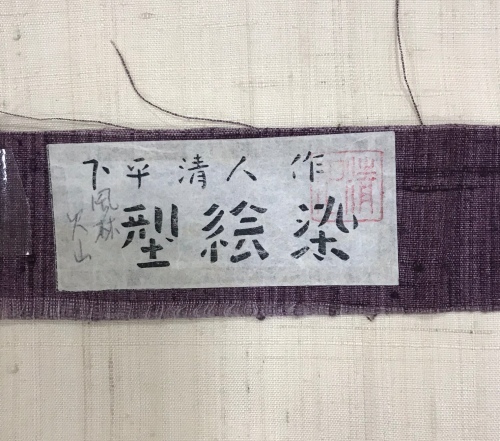 下平清人 作
型絵染
風林
火山